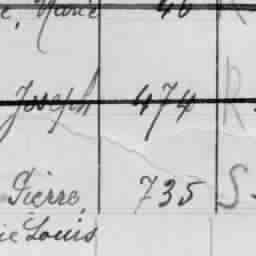 , Marie 46 R
Joseph 474 R
Pierre, 735 S
ie Louis